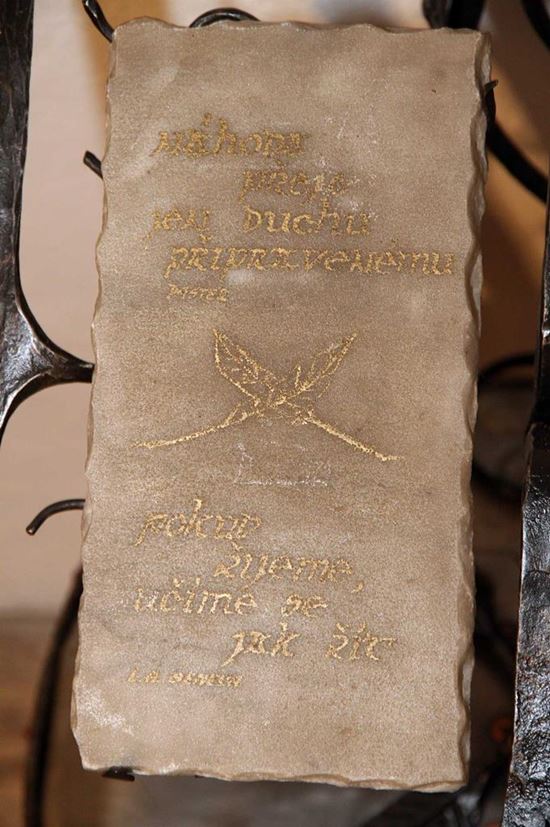 náhoda
přeje
jen duchu
připravenému
pokud
žijeme,
učíme se
jak žít